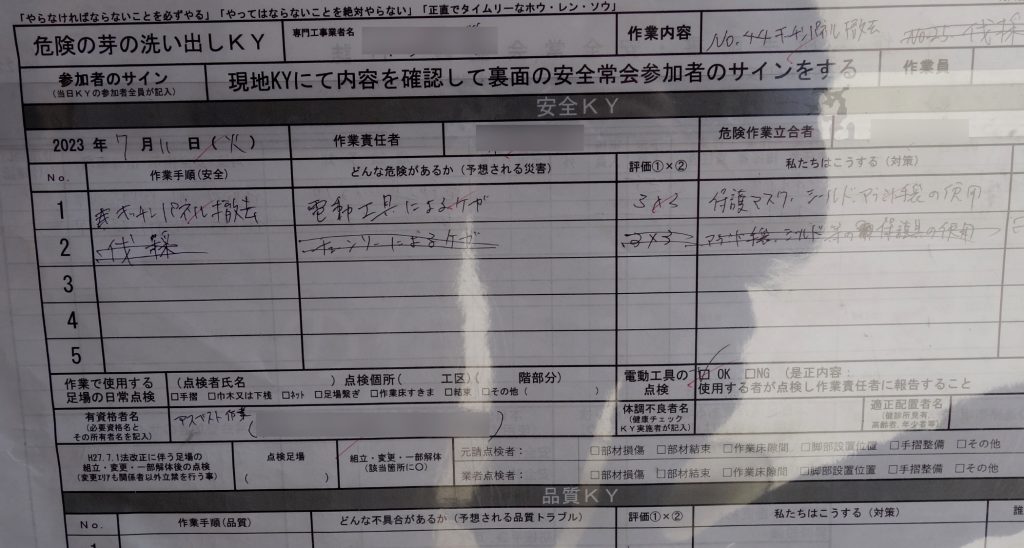 「やらなければならないことを必ずやる」「やってはならないことを絶対やらない」「正直でタイムリーなホウ・レン・ソウ」
危険の芽の洗い出しKY
専門工事業者名
作業内容
No.44 キッチンパネル撤去
伐採
参加者のサイン
(当日KYの参加者全員が記入)
現地KYにて内容を確認して裏面の安全常会参加者のサインをする
作業員
安全KY
2023 年 7 月 11 日 (火)
作業責任者
危険作業立合者
No. 作業手順(安全) どんな危険があるか(予想される災害) 評価①×② 私たちはこうする(対策)
1 キッチンパネル撤去 電動工具によるケガ 3×3 保護マスク、シールド、手袋の使用
2 伐採 チェーンソーによるケガ 2×3 手袋、シールド等の保護具の使用
3
4
5
作業で使用する
足場の日常点検
(点検者氏名 ) 点検個所( 工区)( 階部分)
□手摺 □巾木又は下桟 □ネット □足場繋ぎ □作業床すきま □結束 □その他( )
電動工具の
点検
☑OK □NG (是正内容:
使用する者が点検し作業責任者に報告すること
有資格者名
(必要資格名と
その所有者名を記入)
アスベスト作業( )
体調不良者名
(健康チェック
KY実施者が記入)
適正配置者名
(健診所見有、
高齢者、年少者等)
H27.7.1法改正に伴う足場の
組立・変更・一部解体後の点検
(変更エリアも関係者以外立禁を行う事)
点検足場
( )
組立・変更・一部解体
(該当箇所に○)
元請点検者: □部材損傷 □部材結束 □作業床隙間 □脚部設置位置 □手摺整備 □その他
業者点検者: □部材損傷 □部材結束 □作業床隙間 □脚部設置位置 □手摺整備 □その他
品質KY
No. 作業手順(品質) どんな不具合があるか(予想される品質トラブル) 評価①×② 私たちはこうする(対策) 誰